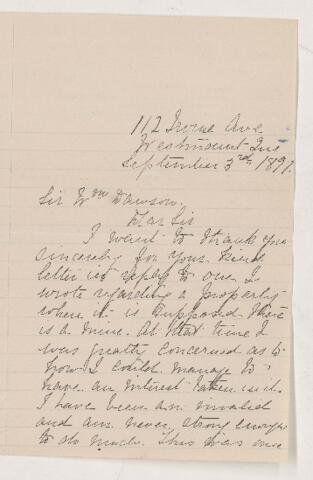 112 Irvine Ave
Westmount Que
September 3rd 1897.
Sir Wm Dawson,
Dear Sir
I want to thank you
sincerely for your kind
letter in reply to one I
wrote regarding a property
where it is supposed there
is a mine. At that time I
was greatly concerned as to
how I could manage to
have an interest taken in it.
I have been an invalid
and am never strong enough
to do much. This was once